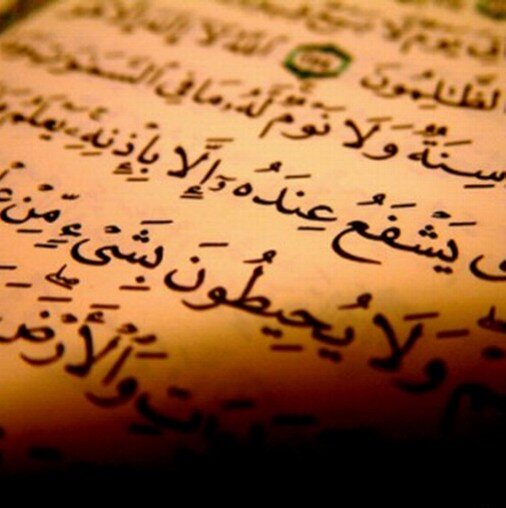 يَوْمٌ لَّا بَيْعٌ
ٱلظَّـٰلِمُونَ ٱللَّهُ لَآ إِلَـٰهَ إِلَّا
سِنَةٌ وَلَا نَوْمٌ لَّهُۥ مَا فِى ٱلسَّمَـٰوَٰتِ
يَشْفَعُ عِندَهُۥٓ إِلَّا بِإِذْنِهِۦ يَعْلَمُ
وَلَا يُحِيطُونَ بِشَىْءٍ مِّنْ
وَٱلْأَرْضَ